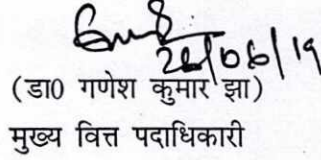 26/06/19
(डा0 गणेश कुमार झा)
मुख्य वित्त पदाधिकारी